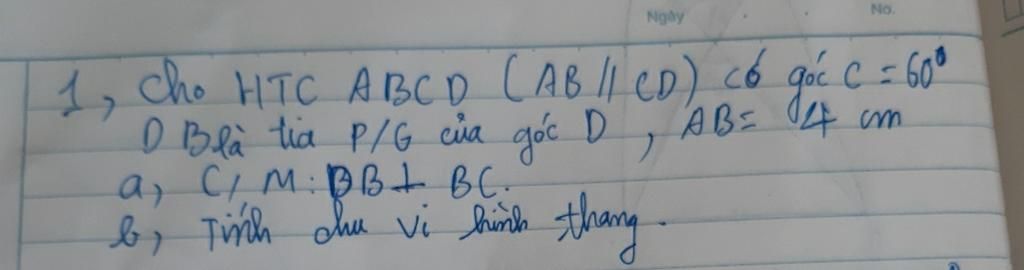 Ngày
No.
1, Cho HTC ABCD (AB // CD) có góc C = 60°
DB là tia P/G của góc D, AB = 4 cm
a, C/M: DB ⊥ BC.
b, Tính chu vi hình thang.